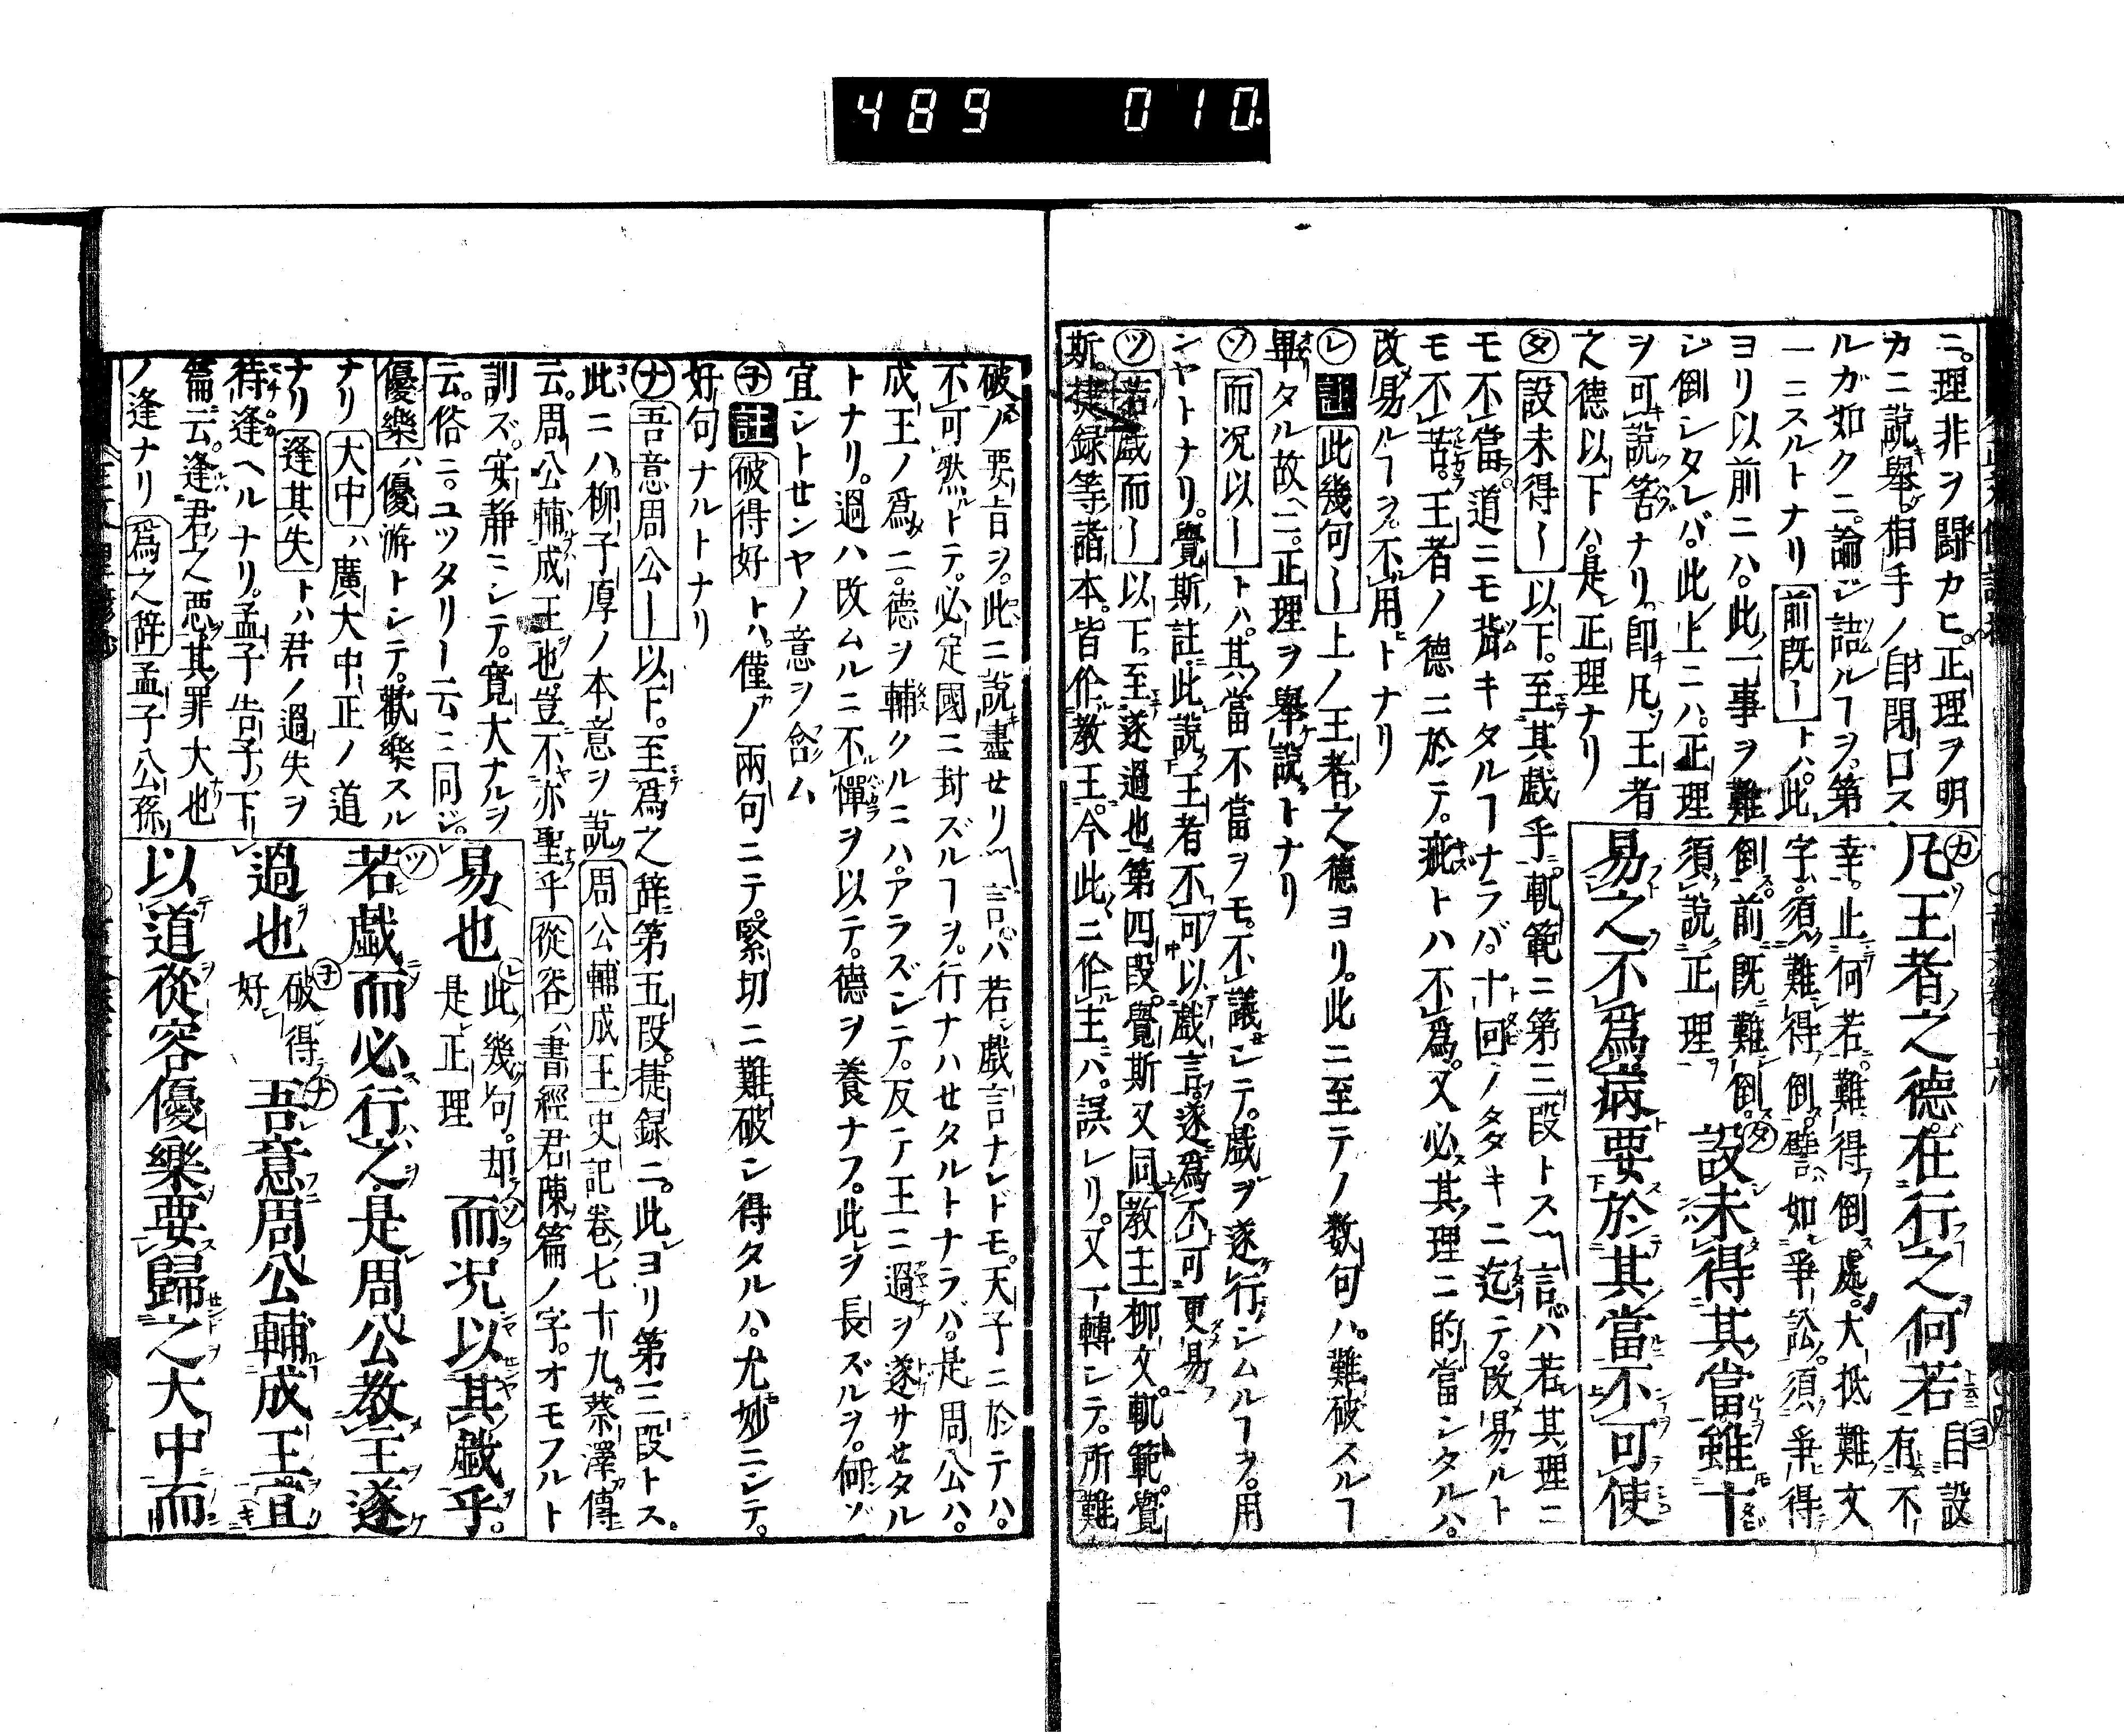 489 010.
ニ。理非ヲ闘カヒ。正理ヲ明
カニ説舉。相手ノ自閉口ス
ルガ如クニ。論ジ詰ルヿヲ。第
一ニスルトナリ 前既ー トハ。此
ヨリ以前ニハ。此一事ヲ難
シ倒シタレバ。此上ニハ。正理
ヲ可説筈ナリ。即凡王者
之德以下ハ。是正理ナリ
カ 凡王者之德。在行之何若 ヨ 自設有不
幸。止何若。難得倒處。大抵難文
字。須難得倒。譬如爭訟。須爭得
倒。前既難倒。
須説正理 タ 設未得其當。雖十
易之不爲病。要於其當。不可使
タ 設未得ー 以下。至其戯乎。軌範ニ第三段トス 言ハ若其理ニ
モ不當。道ニモ背キタルヿナラバ。十回ノタタキニ迄テ。改易ルト
モ不苦。王者ノ德ニ於テ。疵トハ不爲。又必其理ニ的當シタルハ。
改易ルヿヲ。不用トナリ
レ 註 此幾句ー 上ノ王者之德ヨリ。此ニ至テノ数句ハ。難破スルヿ
畢タル故ニ。正理ヲ舉説トナリ
ソ 而况以ー トハ。其當不當ヲモ。不議シテ。戯ヲ遂行シムルヿヲ。用
ンヤトナリ。覺斯註。此説王者不可以戯言。遂爲不可更易
ツ 若戯而ー 以下。至遂過也第四段。覺斯又同 教王 柳文。軌範。覺
斯。捷録等諸本。皆作教王。今此ニ作主ハ。誤レリ。又一轉シテ。所難
破ノ要旨ヲ。此ニ説盡セリ 言ハ若戯言ナレドモ。天子ニ於テハ。
不可然トテ。必定國ニ封ズルヿヲ。行ナハセタルトナラバ。是周公ハ。
成王ノ爲ニ。德ヲ輔クルニハ。アラズシテ。反テ王ニ過ヲ遂サセタル
トナリ。過ハ改ムルニ不憚ヲ以テ。德ヲ養ナフ。此ヲ長ズルヲ。何ゾ
宜シトセンヤノ意ヲ含ム
子 註 破得好 トハ。僅ノ兩句ニテ。緊切ニ難破シ得タルハ。尤妙ニシテ。
好句ナルトナリ
ナ 吾意周公ー 以下。至爲之辞第五段。捷録ニ。此ヨリ第三段トス。
此ニハ。柳子厚ノ本意ヲ説 周公輔成王 史記卷七十九。蔡澤傳
云。周公輔成王也。豈不亦聖乎 從容 書經君陳篇ノ字。オモフルト
訓ズ。安静ニシテ。寛大ナルヲ
云。俗ニ。ユツタリー云ニ同ジ。
優樂 ハ優游トシテ。歡樂スル
ナリ 大中 ハ廣大中正ノ道
ナリ 逢其失 トハ君ノ過失ヲ
待逢ヘルナリ。孟子告子下
篇云。逢君之惡。其罪大也
ノ逢ナリ 爲之辞 孟子公孫
易也 レ 此幾句。却是正理 ソ 而况以其戯乎。
ツ 若戯而必行之。是周公教王遂
過也 子 破得好 ナ 吾意周公輔成王。宜
以道從容優樂。要歸之大中而